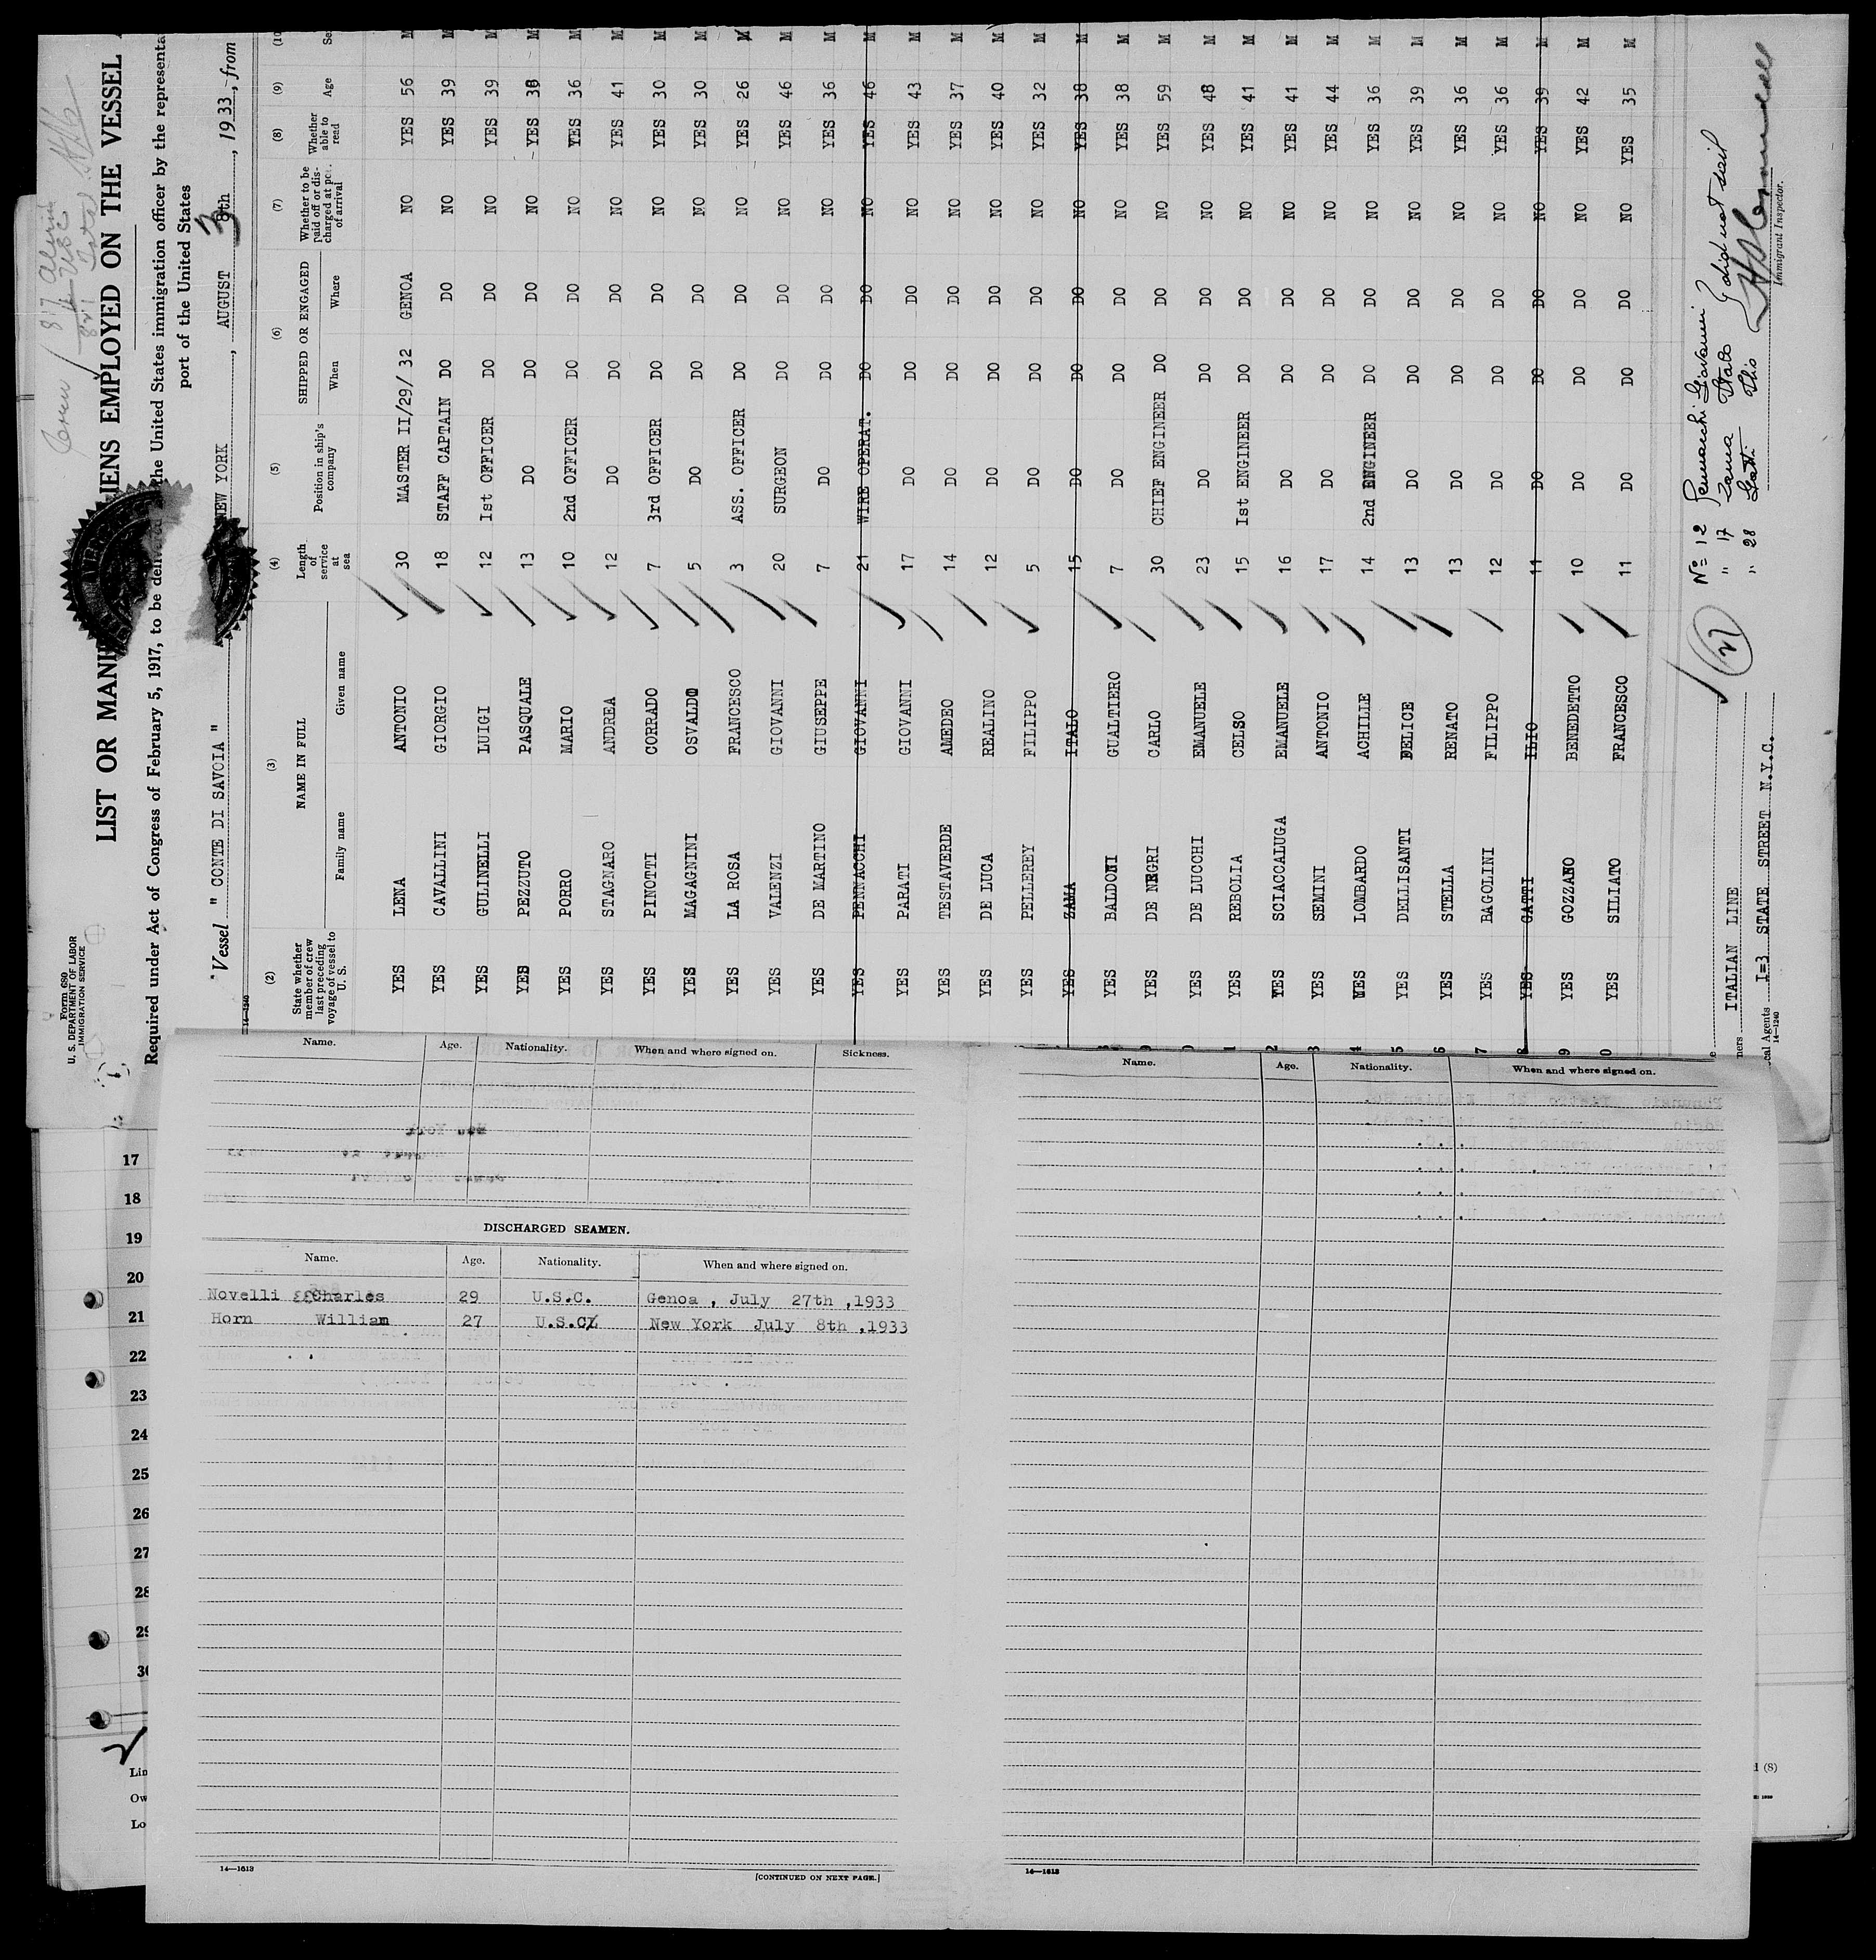 Form 680
U. S. DEPARTMENT OF LABOR
IMMIGRATION SERVICE
LIST OR MANI IENS EMPLOYED ON THE VESSEL
Required under Act of Congress of February 5, 1917, to be the United States immigration officer by the representa
port of the United States
Vessel " CONTE DI SAVOIA " NEW YORK , AUGUST 3 8th , 1933, from
(2) (3) (4) (5) (6) (7) (8) (9)
State whether member of crew last preceding voyage of vessel to U. S. NAME IN FULL Length of service at sea Position in ship's company SHIPPED OR ENGAGED Whether to be paid off or discharged at port of arrival Whether able to read Age
Family name Given name When Where
YES LENA ANTONIO 30 MASTER II/29/ 32 GENOA NO YES 56 M
YES CAVALLINI GIORGIO 18 STAFF CAPTAIN DO DO NO YES 39 M
YES GULINELLI LUIGI 12 1st OFFICER DO DO NO YES 39 M
YES PEZZUTO PASQUALE 13 DO DO DO NO YES 38 M
YES PORRO MARIO 10 2nd OFFICER DO DO NO YES 36 M
YES STAGNARO ANDREA 12 DO DO DO NO YES 41 M
YES PINOTTI CORRADO 7 3rd OFFICER DO DO NO YES 30 M
YES MAGAGNINI OSVALDO 5 DO DO DO NO YES 30 M
YES LA ROSA FRANCESCO 3 ASS. OFFICER DO DO NO YES 26 M
YES VALENZI GIOVANNI 20 SURGEON DO DO NO YES 46 M
YES DE MARTINO GIUSEPPE 7 DO DO DO NO YES 36 M
YES PENNACCHI GIOVANNI 21 WIRE OPERAT. DO DO NO YES 46 M
YES PARATI GIOVANNI 17 DO DO DO NO YES 43 M
YES TESTAVERDE AMEDEO 14 DO DO DO NO YES 37 M
YES DE LUCA REALINO 12 DO DO DO NO YES 40 M
YES PELLEREY FILIPPO 5 DO DO DO NO YES 32 M
YES ZAMA ITALO 15 DO DO DO NO YES 38 M
YES BALDONI GUALTIERO 7 DO DO DO NO YES 38 M
YES DE NEGRI CARLO 30 CHIEF ENGINEER DO DO NO YES 59 M
YES DE LUCCHI EMANUELE 23 DO DO DO NO YES 48 M
YES REBOLIA CELSO 15 1st ENGINEER DO DO NO YES 41 M
YES SCIACCALUGA EMANUELE 16 DO DO DO NO YES 41 M
YES SEMINI ANTONIO 17 DO DO DO NO YES 44 M
YES LOMBARDO ACHILLE 14 2nd ENGINEER DO DO NO YES 36 M
YES DELLISANTI DELICE 13 DO DO DO NO YES 39 M
YES STELLA RENATO 13 DO DO DO NO YES 36 M
YES BAGOLINI FILIPPO 12 DO DO DO NO YES 36 M
YES GATTI ILIO 11 DO DO DO NO YES 39 M
YES GOZZANO BENEDETTO 10 DO DO DO NO YES 42 M
YES SILIATO FRANCESCO 11 DO DO DO NO YES 35 M
No= 12 Pennacchi Giovanni
" 17 Zama Italo did not sail
" 28 Gatti
ITALIAN LINE
cal Agents I=3 STATE STREET N.Y.C.
Immigrant Inspector.
14—1240
Name. Age. Nationality. When and where signed on. Sickness.
DISCHARGED SEAMEN.
Name. Age. Nationality. When and where signed on.
Novelli Charles 29 U.S.C. Genoa , July 27th ,1933
Horn William 27 U.S.C. New York July 8th ,1933
14—1613
[CONTINUED ON NEXT PAGE.]
Name. Age. Nationality. When and where signed on.
14—1613
17
18
19
20
21
22
23
24
25
26
27
28
29
30
Lin
Ow
Lo
(8)